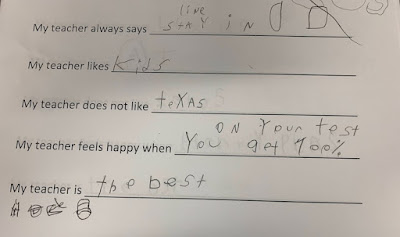 line
My teacher always says stay in
My teacher likes kids
My teacher does not like texas
on your test
My teacher feels happy when You get 100%
My teacher is the best